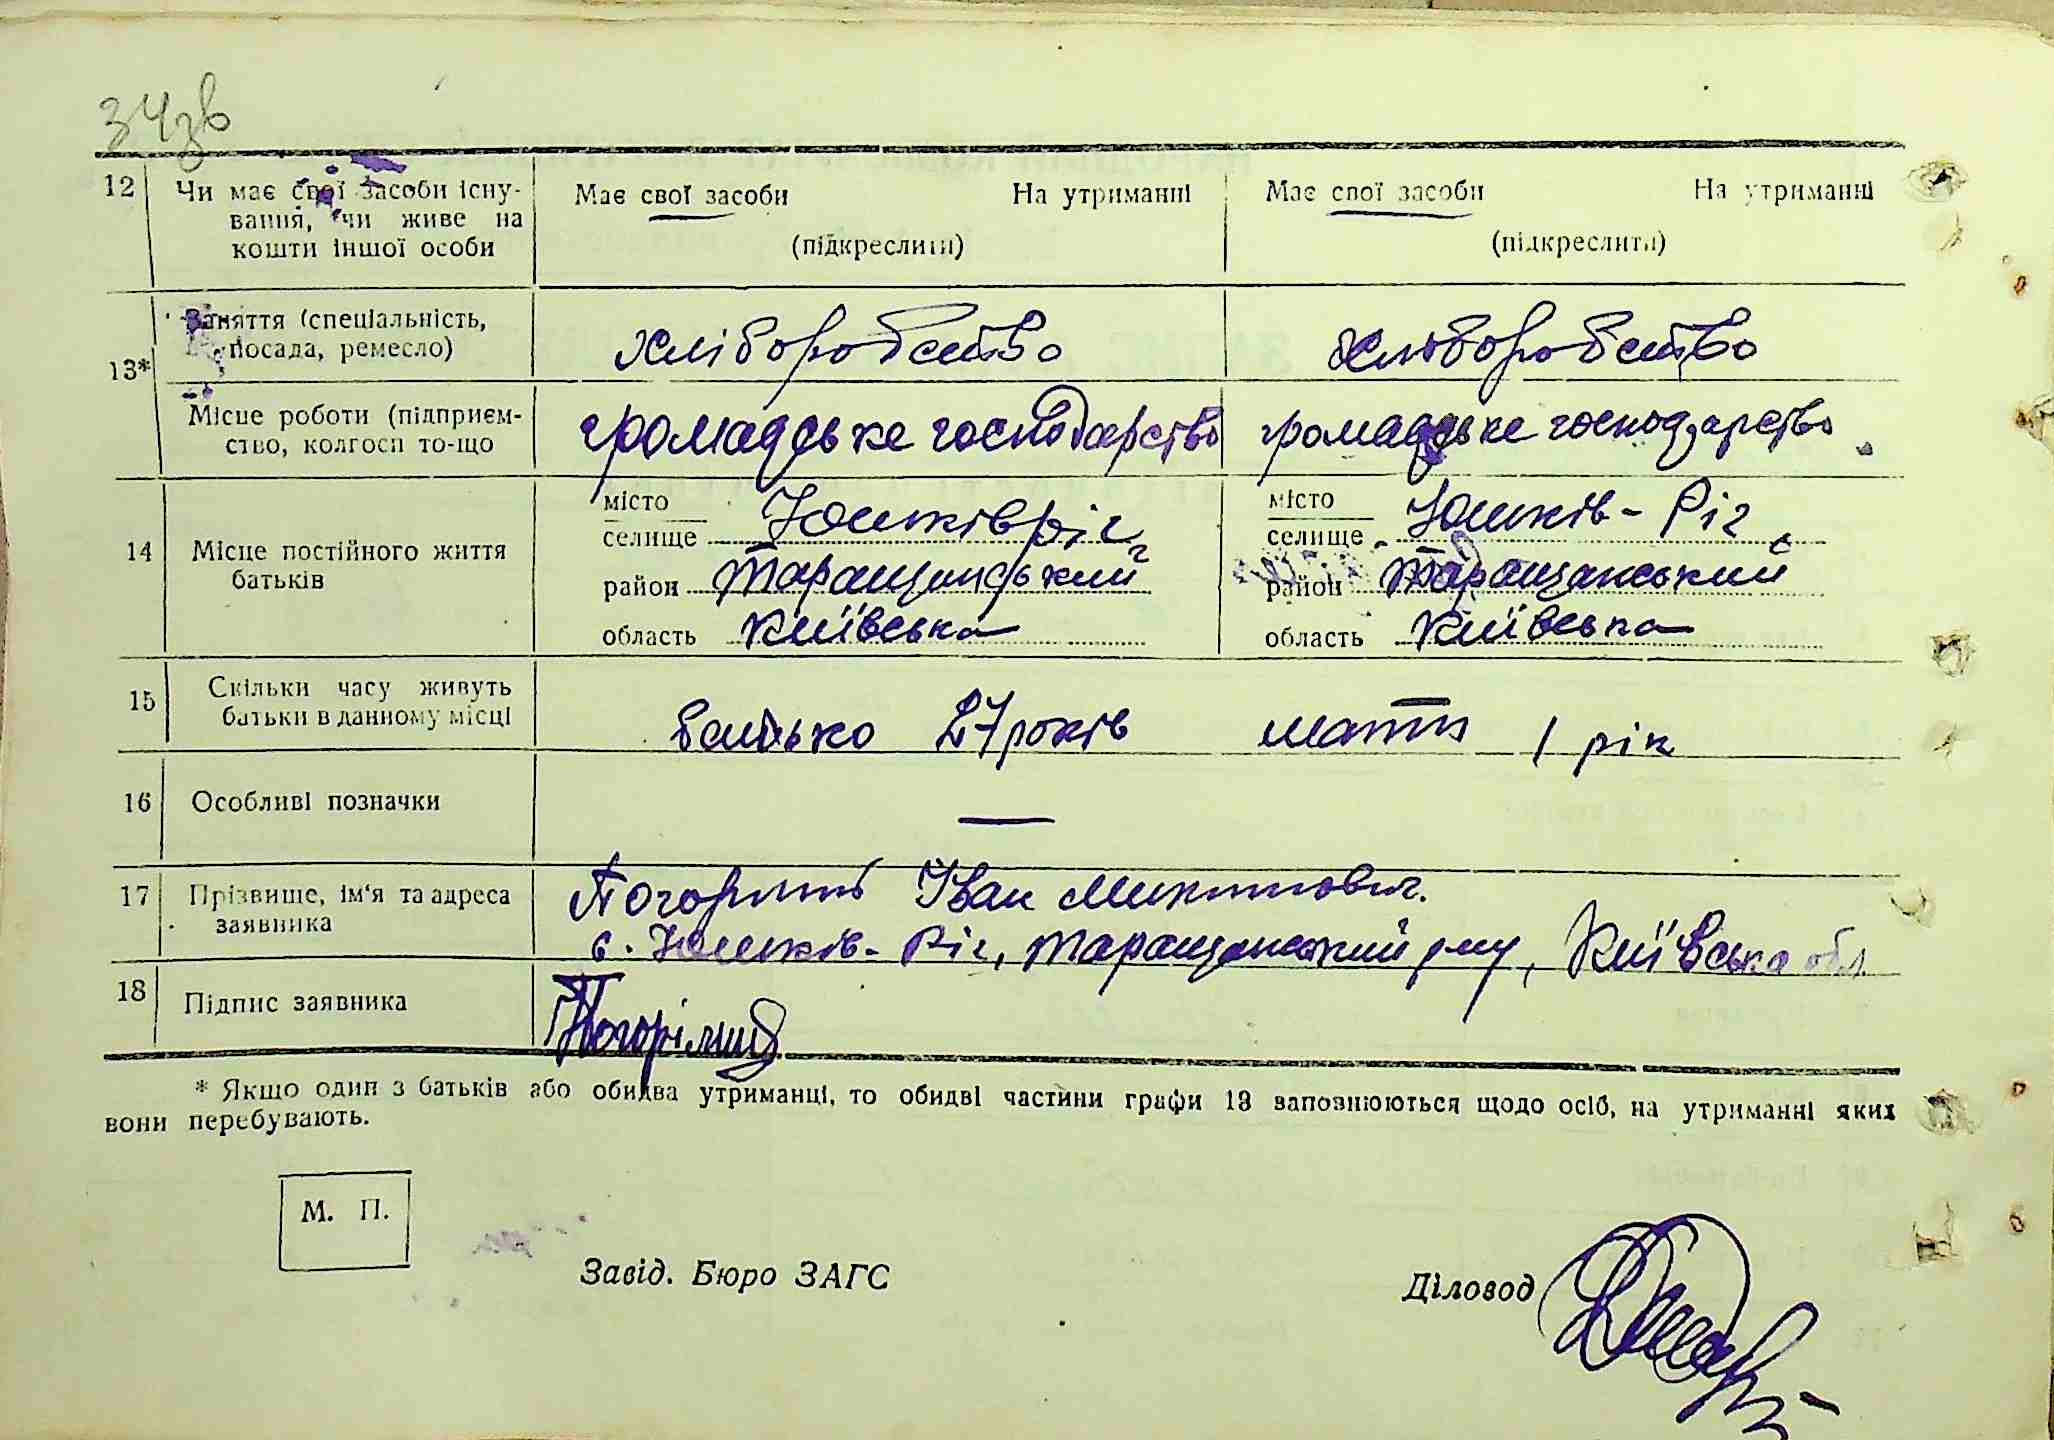 34зв
12 Чи має свої засоби існу- Має свої засоби На утриманні Має свої засоби На утриманні
вання, чи живе на
кошти іншої особи (підкреслити) (підкреслити)
13* Заняття (спеціальність,
посада, ремесло) хліборобство хліборобство
Місце роботи (підприєм-
ство, колгосп то-що громадське господарство громадське господарство
14 Місце постійного життя
батьків
місто
селище Юшків ріг місто
селище Юшків-Ріг
район Таращанський район Таращанський
область Київська область Київська
15 Скільки часу живуть
батьки в данному місці батько 27 років мати 1 рік
16 Особливі позначки —
17 Прізвище, ім'я та адреса Іван Микитович.
заявника с. Юшків-Ріг, Таращанський р-ну, Київська обл
18 Підпис заявника Погорілий
* Якщо один з батьків або обидва утриманці, то обидві частини графи 13 заповнюються щодо осіб, на утриманні яких
вони перебувають.
М. П.
Завід. Бюро ЗАГС Діловод